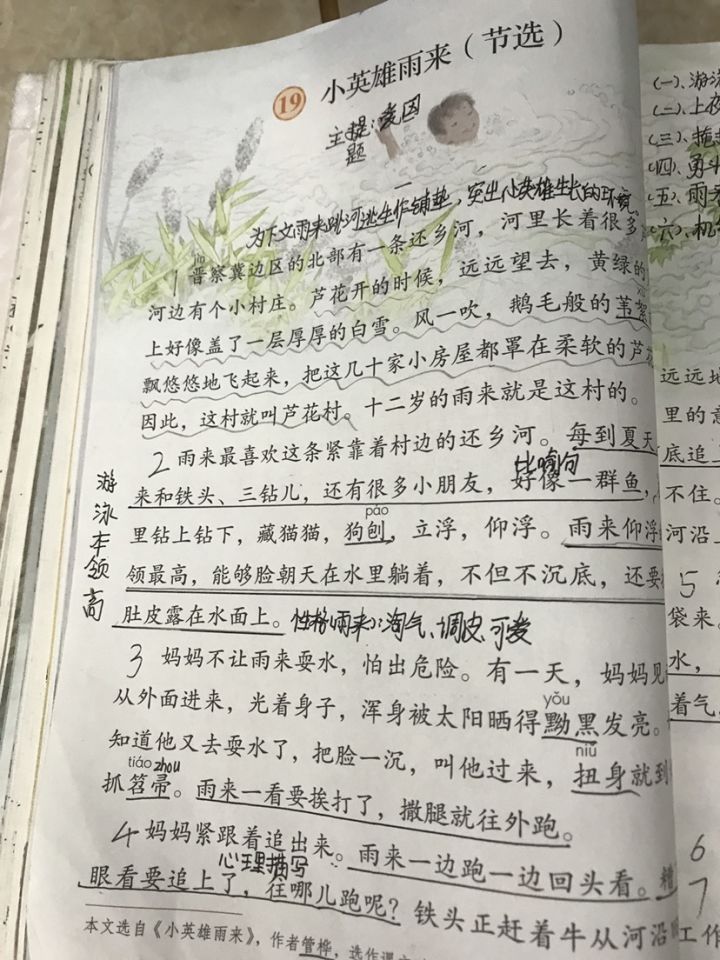 19 小英雄雨来（节选）
主题：爱国
一
为下文雨来跳河逃生作铺垫，突出小英雄生长的环境
1 晋察冀边区的北部有一条还乡河，河里长着很多
河边有个小村庄。芦花开的时候，远远望去，黄绿的
上好像盖了一层厚厚的白雪。风一吹，鹅毛般的苇絮
飘悠悠地飞起来，把这几十家小房屋都罩在柔软的芦花
因此，这村就叫芦花村。十二岁的雨来就是这村的。
2 雨来最喜欢这条紧靠着村边的还乡河。每到夏天
比喻句
来和铁头、三钻儿，还有很多小朋友，好像一群鱼，
páo
里钻上钻下，藏猫猫，狗刨，立浮，仰浮。雨来仰浮
领最高，能够脸朝天在水里躺着，不但不沉底，还要
肚皮露在水面上。性格(雨来)：淘气、调皮、可爱
游泳本领高
3 妈妈不让雨来耍水，怕出危险。有一天，妈妈见
yǒu
从外面进来，光着身子，浑身被太阳晒得黝黑发亮。
niǔ
知道他又去耍水了，把脸一沉，叫他过来，扭身就到
tiáo zhou
抓笤帚。雨来一看要挨打了，撒腿就往外跑。
4 妈妈紧跟着追出来。雨来一边跑一边回头看。糟
心理描写
眼看要追上了，往哪儿跑呢？铁头正赶着牛从河沿
本文选自《小英雄雨来》，作者管桦，选作课文
(一)、游泳
(二)、上夜
(三)、掩
(四)、勇斗
(五)、雨来
(六)、机
远远地
里的意
底追上
不住。
河沿上
5
袋来。
水，
着气
6
7
工作